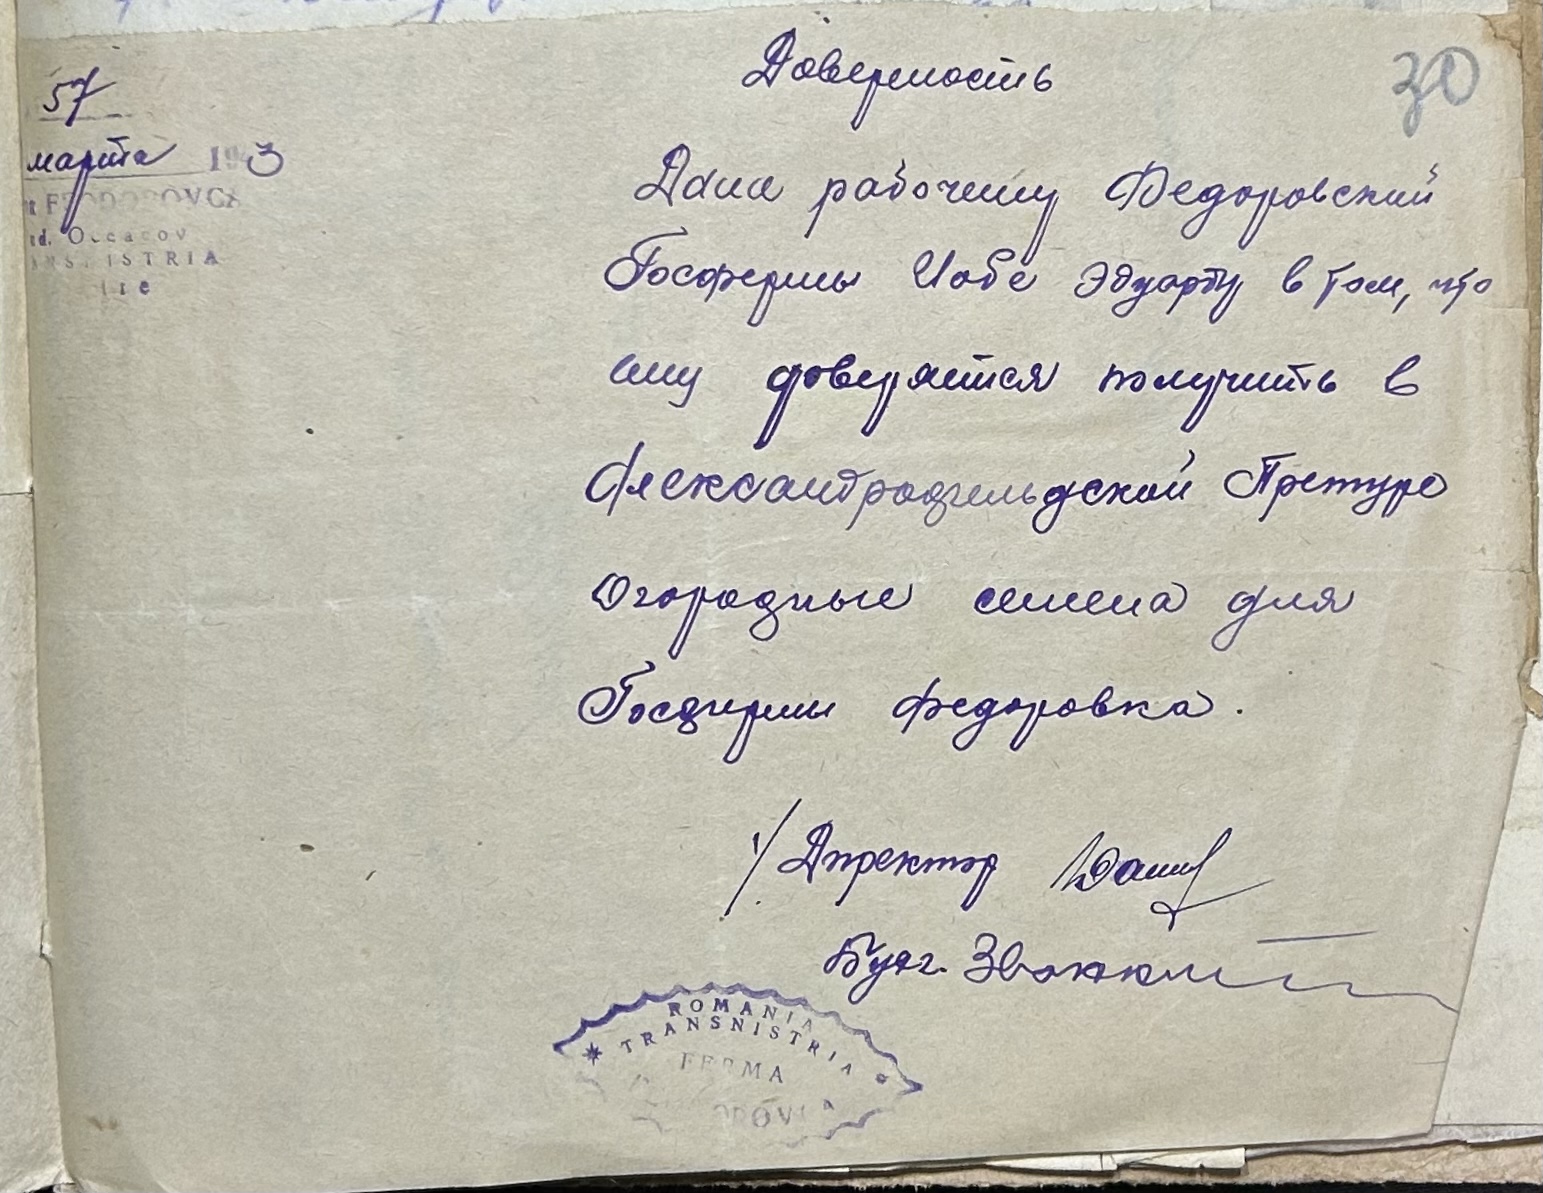 57
марта 1943
FEODOROVCA
d. Oceacov
TRANSNISTRIA
30
Доверность
Дана рабочему Федоровский
Госфермы Иобе Эдуарту в том, что
ему доверяется получить в
Александрофельдской Претуре
огородные семена для
Госфермы Федоровка.
Директор
Бухг.
ROMANIA
TRANSNISTRIA
FERMA